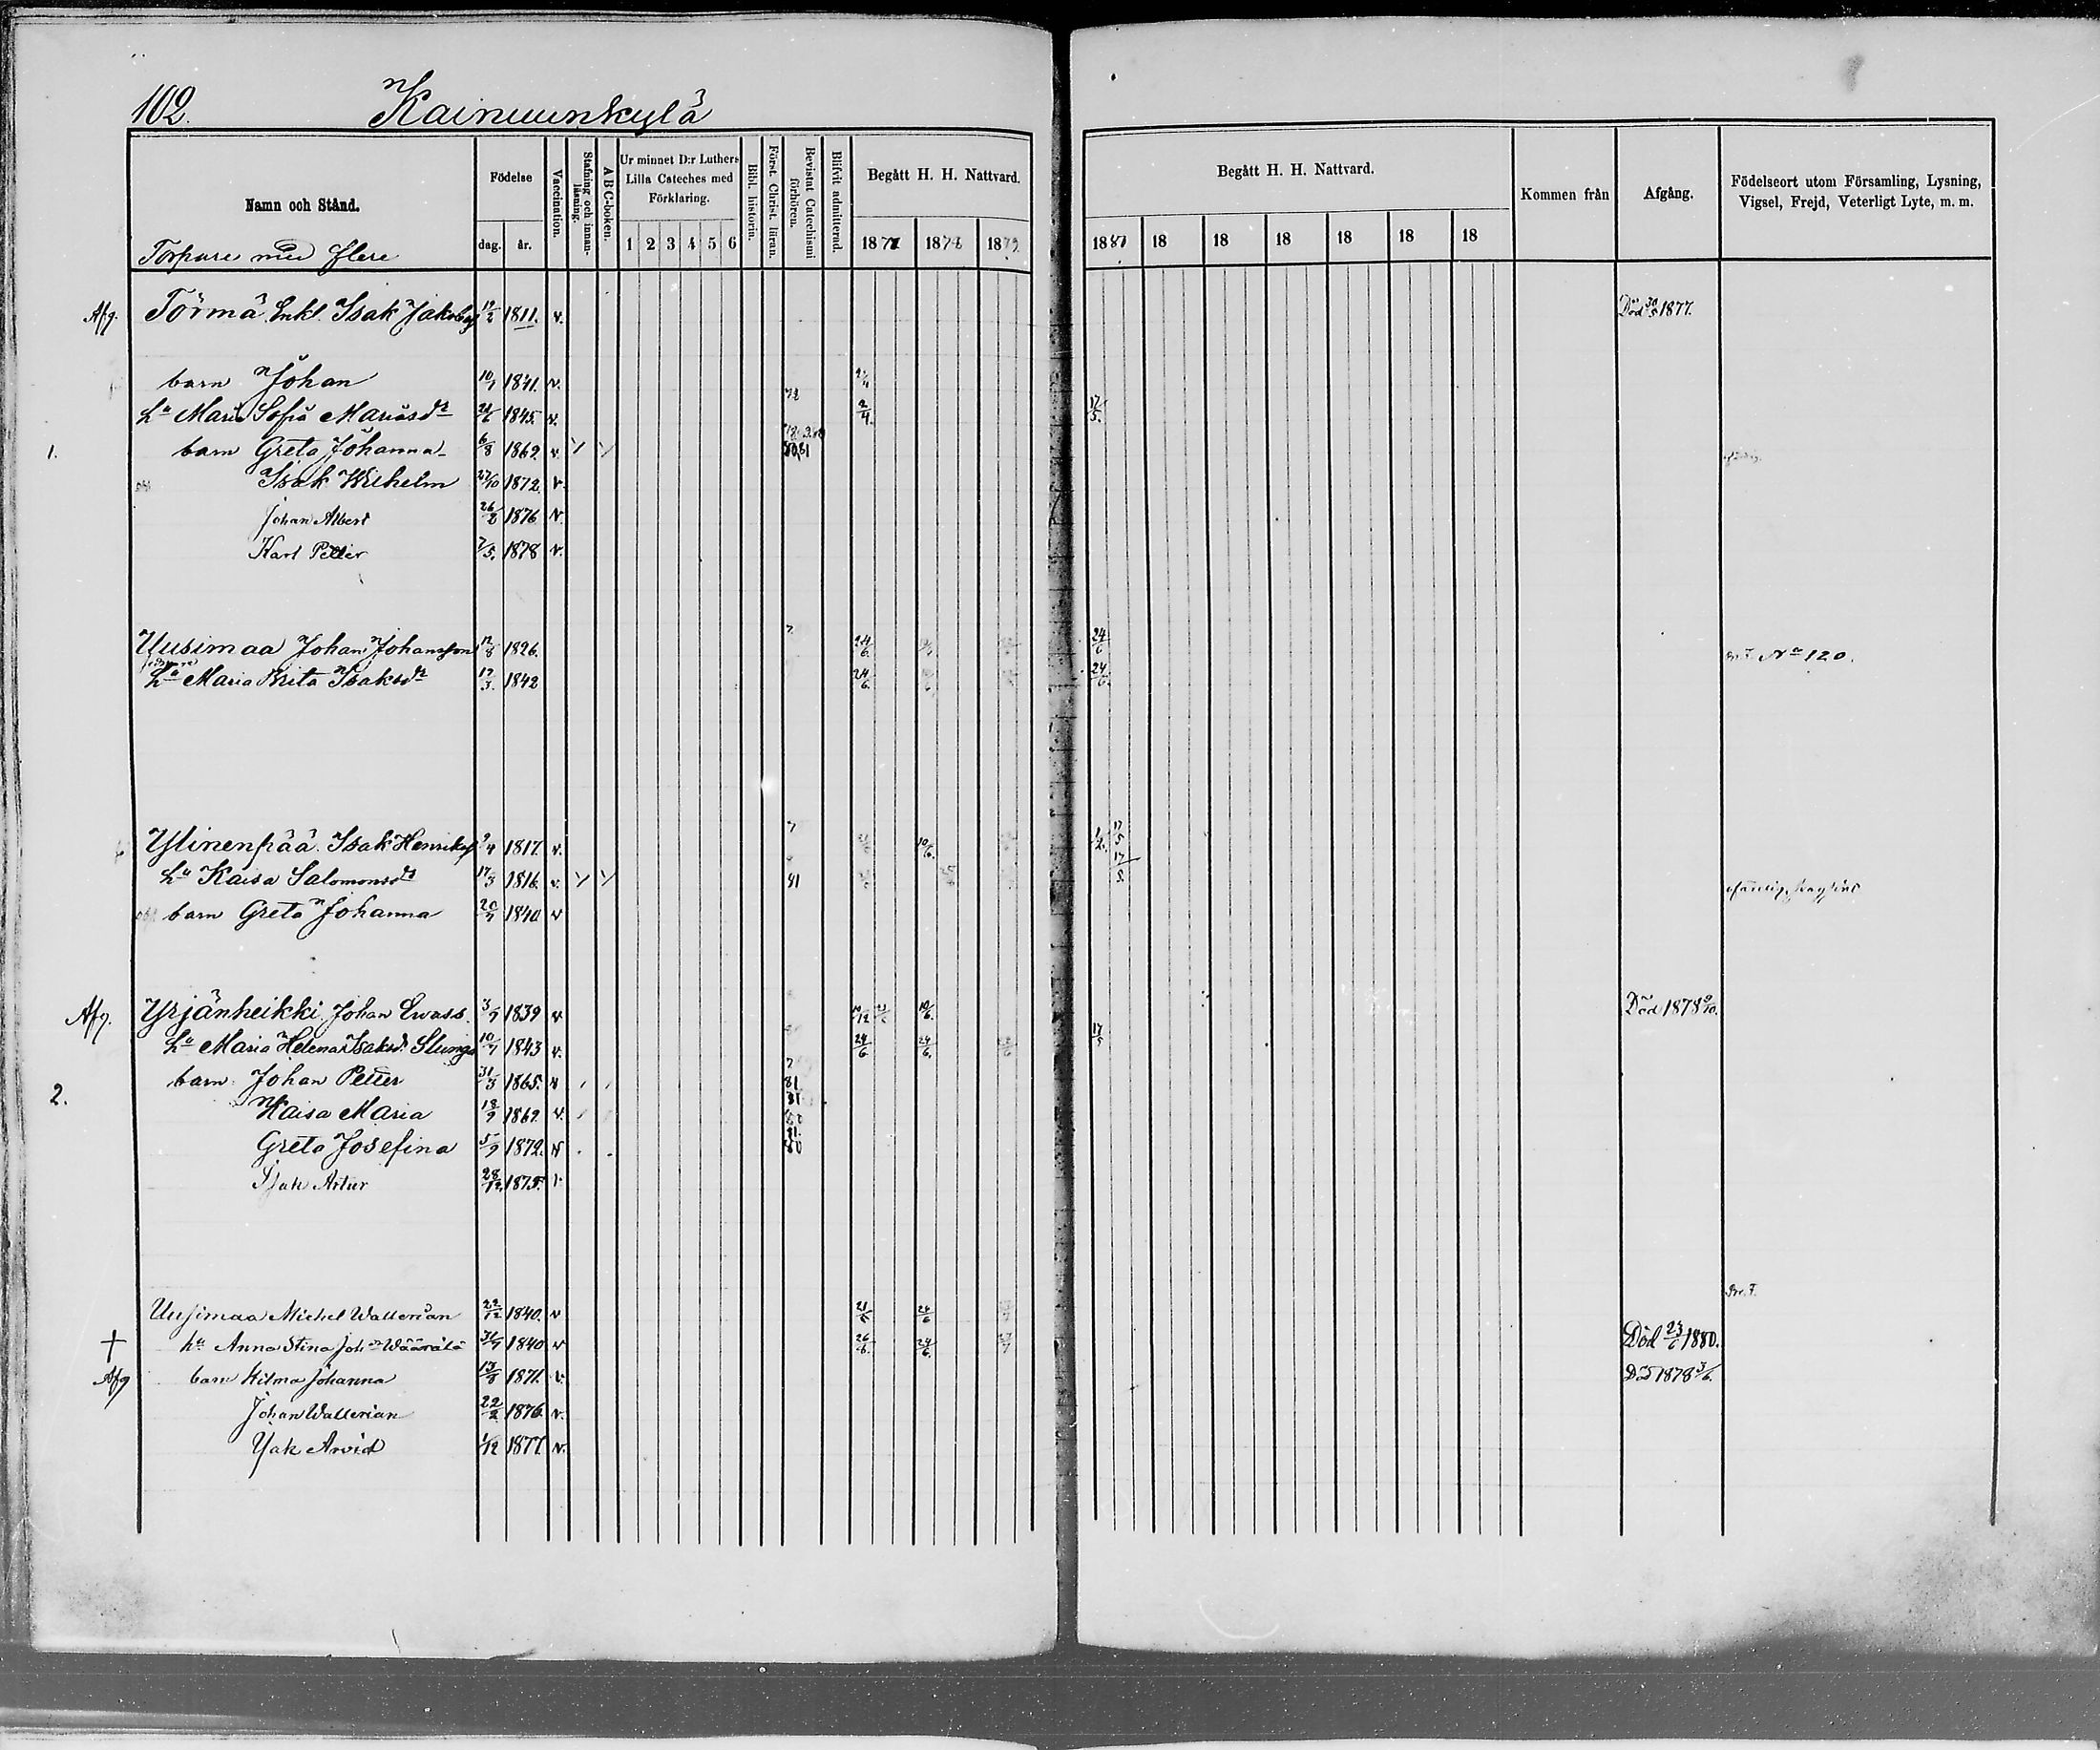 102. Kainuunkylä
Namn och Stånd.
Födelse
dag. år.
Vaccination.
Stafning och innanläsning.
A B C-boken.
Ur minnet D:r Luthers Lilla Cateches med Förklaring.
1 2 3 4 5 6
Bibl. historin.
Först. Christ. läran.
Bevistat Catechismi förhören.
Blifvit admitterad.
Begått H. H. Nattvard.
1877 1878 1879
Begått H. H. Nattvard.
1880 18 18 18 18 18 18
Kommen från
Afgång.
Födelseort utom Församling, Lysning, Vigsel, Frejd, Veterligt Lyte, m. m.
Torpare med flere
Afg. Törmä Enkl. Isak Jakobss 19/2 1811. v. Död 30/5 1877.
barn Johan 10/7 1841. v.
hu Maria Sofia Mariasdr 21/6 1845. v. 2/4. 17/5.
1. barn Greta Johanna 6/8 1869. v.
Isak Wilhelm 27/10 1872. v.
Johan Albert 26/2 1876 v.
Karl Petter 7/5. 1878 v.
Uusimaa Johan Johansson 12/8 1826. 24/6. 24/6 No 120.
hu Maria Brita Isaksdr 17/3. 1842 24/6. 24/6.
Ylinenpää. Isak Henrikss 9/4 1817. v. 10/6. 1/2. 17/5
hu Kaisa Salomonsdr 17/3 1816. v. 81 17/5.
barn Greta Johanna 20/7 1840 v
Afg. Yrjänheikki. Johan Ewass. 3/7 1839 v 10/6. Död 1878 9/10.
hu Maria Helena Isaksdr Slunga 10/7 1843 v. 24/6 24/6. 17/5
barn Johan Petter 31/3 1865. v 81
2. Kaisa Maria 18/9 1869. v. 81
Greta Josefina 5/9 1872. v 81. 80
Isak Artur 28/12. 1875. v
Uusimaa Michel Wallerian 22/12 1840. v 24/6
† hu Anna Stina Joh.dr Wäärälä 31/7 1840 v 26/6. 24/6. Död 23/6 1880.
Afg barn Hilma Johanna 13/8 1871. v. Död 1878 3/6.
Johan Wallerian 22/2 1876. v.
Isak Arvid 1/12 1877. v.